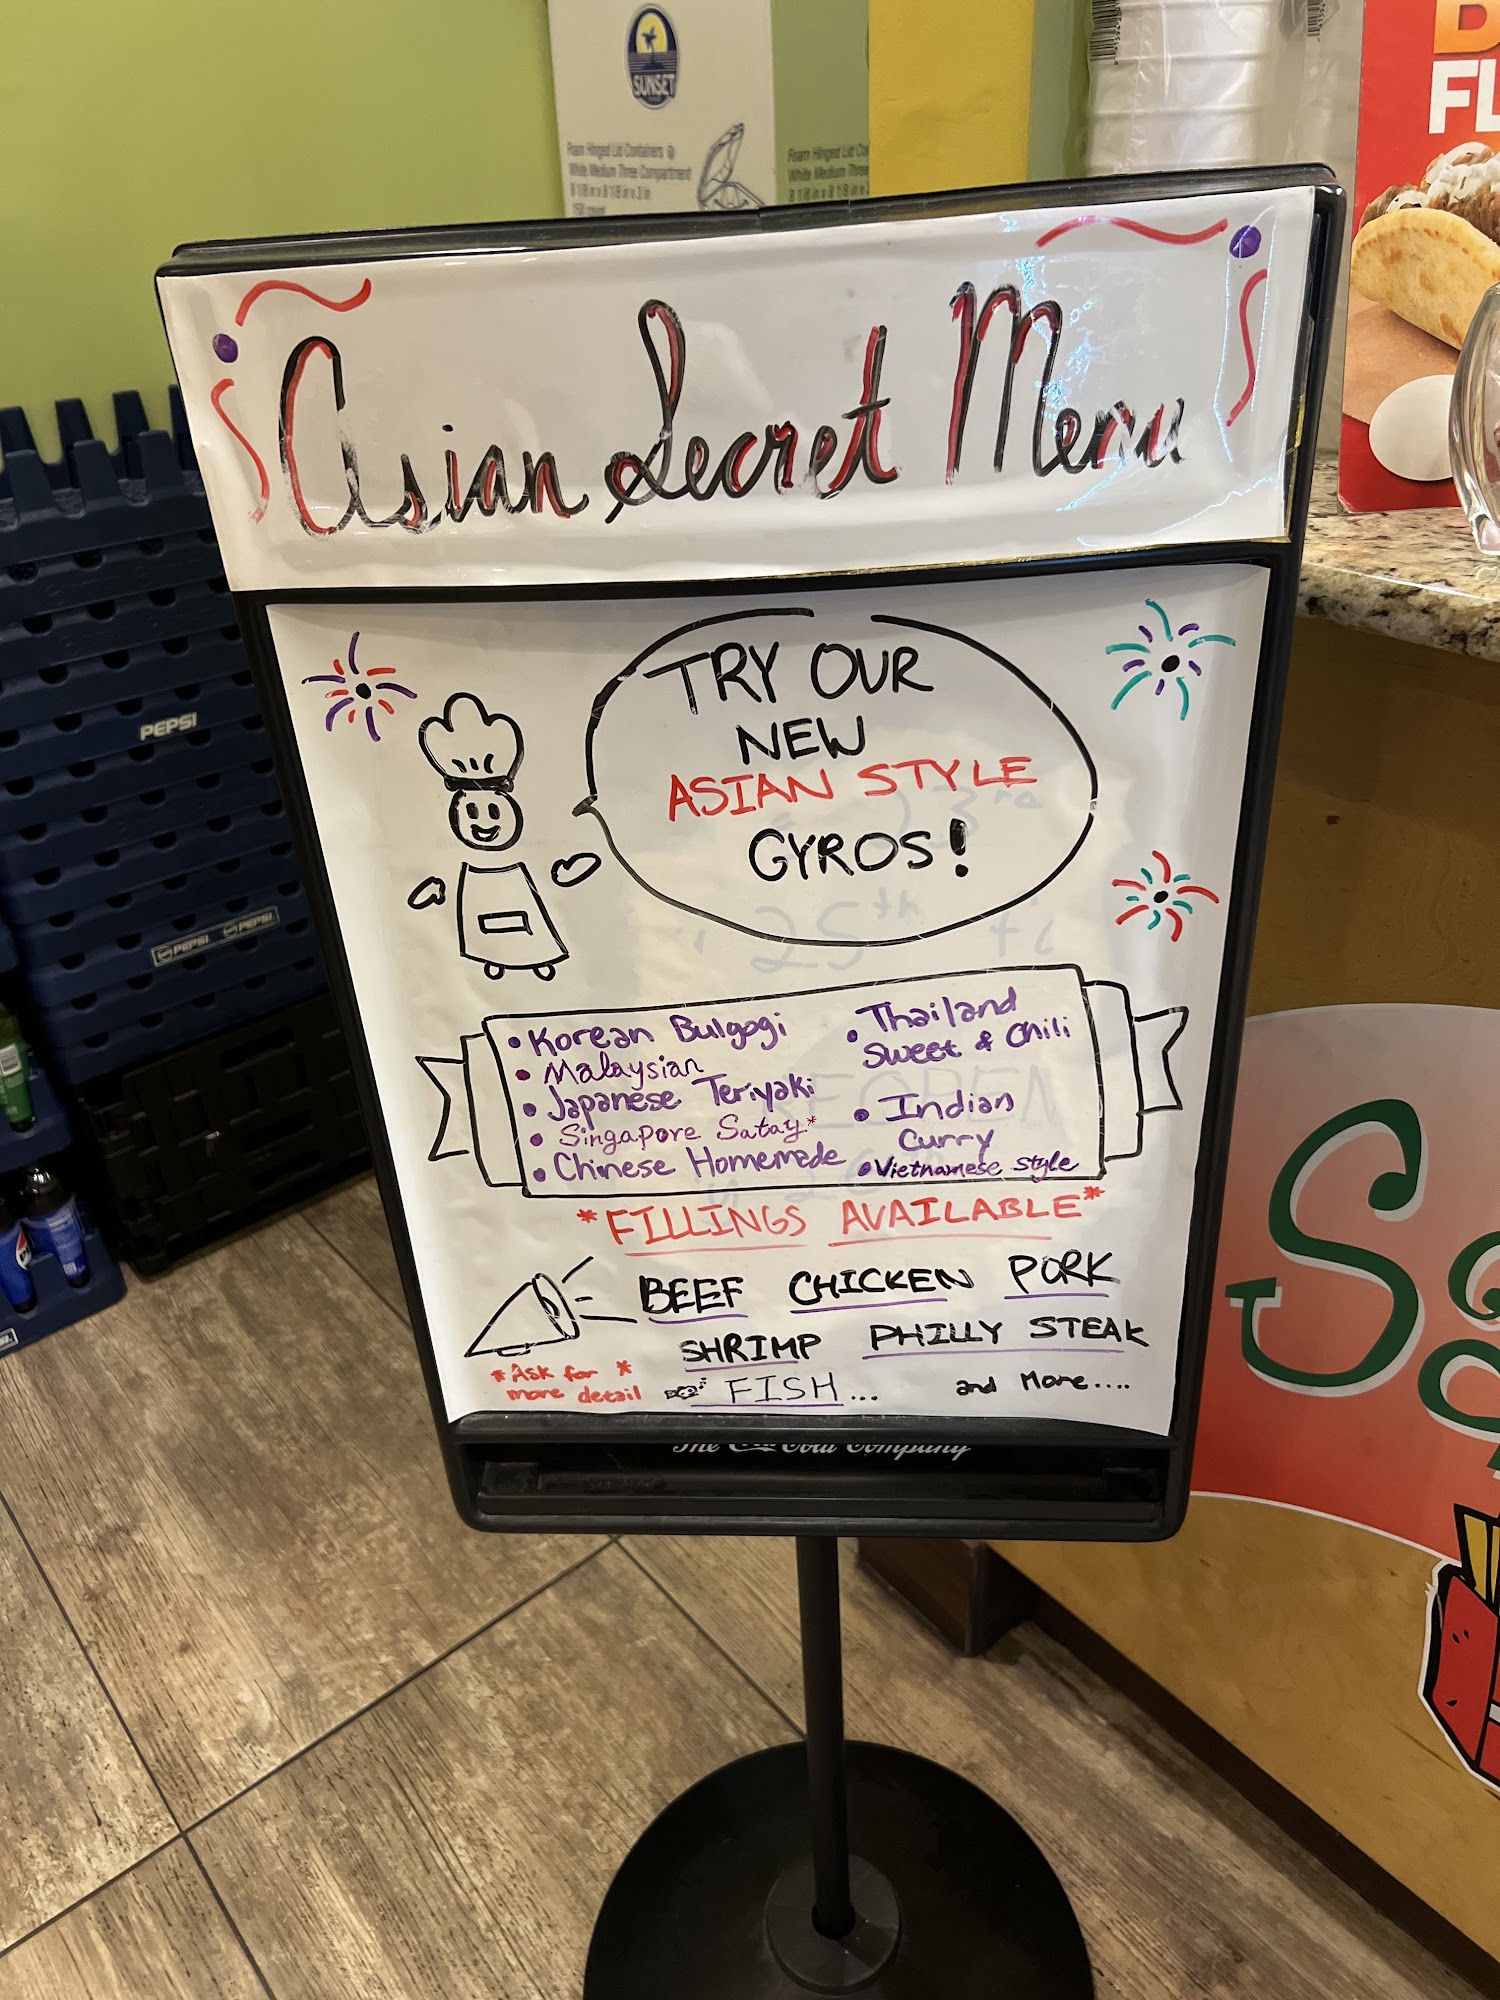 SUNSET
Foam Hinged Lid Containers
White Medium Three Compartment
Foam Hinged Lid
White Medium Three
FL
Asian Secret Menu
TRY OUR
NEW
ASIAN STYLE
GYROS!
• Korean Bulgogi
• Malaysian
• Japanese Teriyaki
• Singapore Satay*
• Chinese Homemade
• Thailand
Sweet & Chili
• Indian
Curry
• Vietnamese style
*FILLINGS AVAILABLE*
BEEF CHICKEN PORK
SHRIMP PHILLY STEAK
FISH... and More....
*Ask for *
more detail
The Coca-Cola Company
PEPSI
PEPSI PEPSI